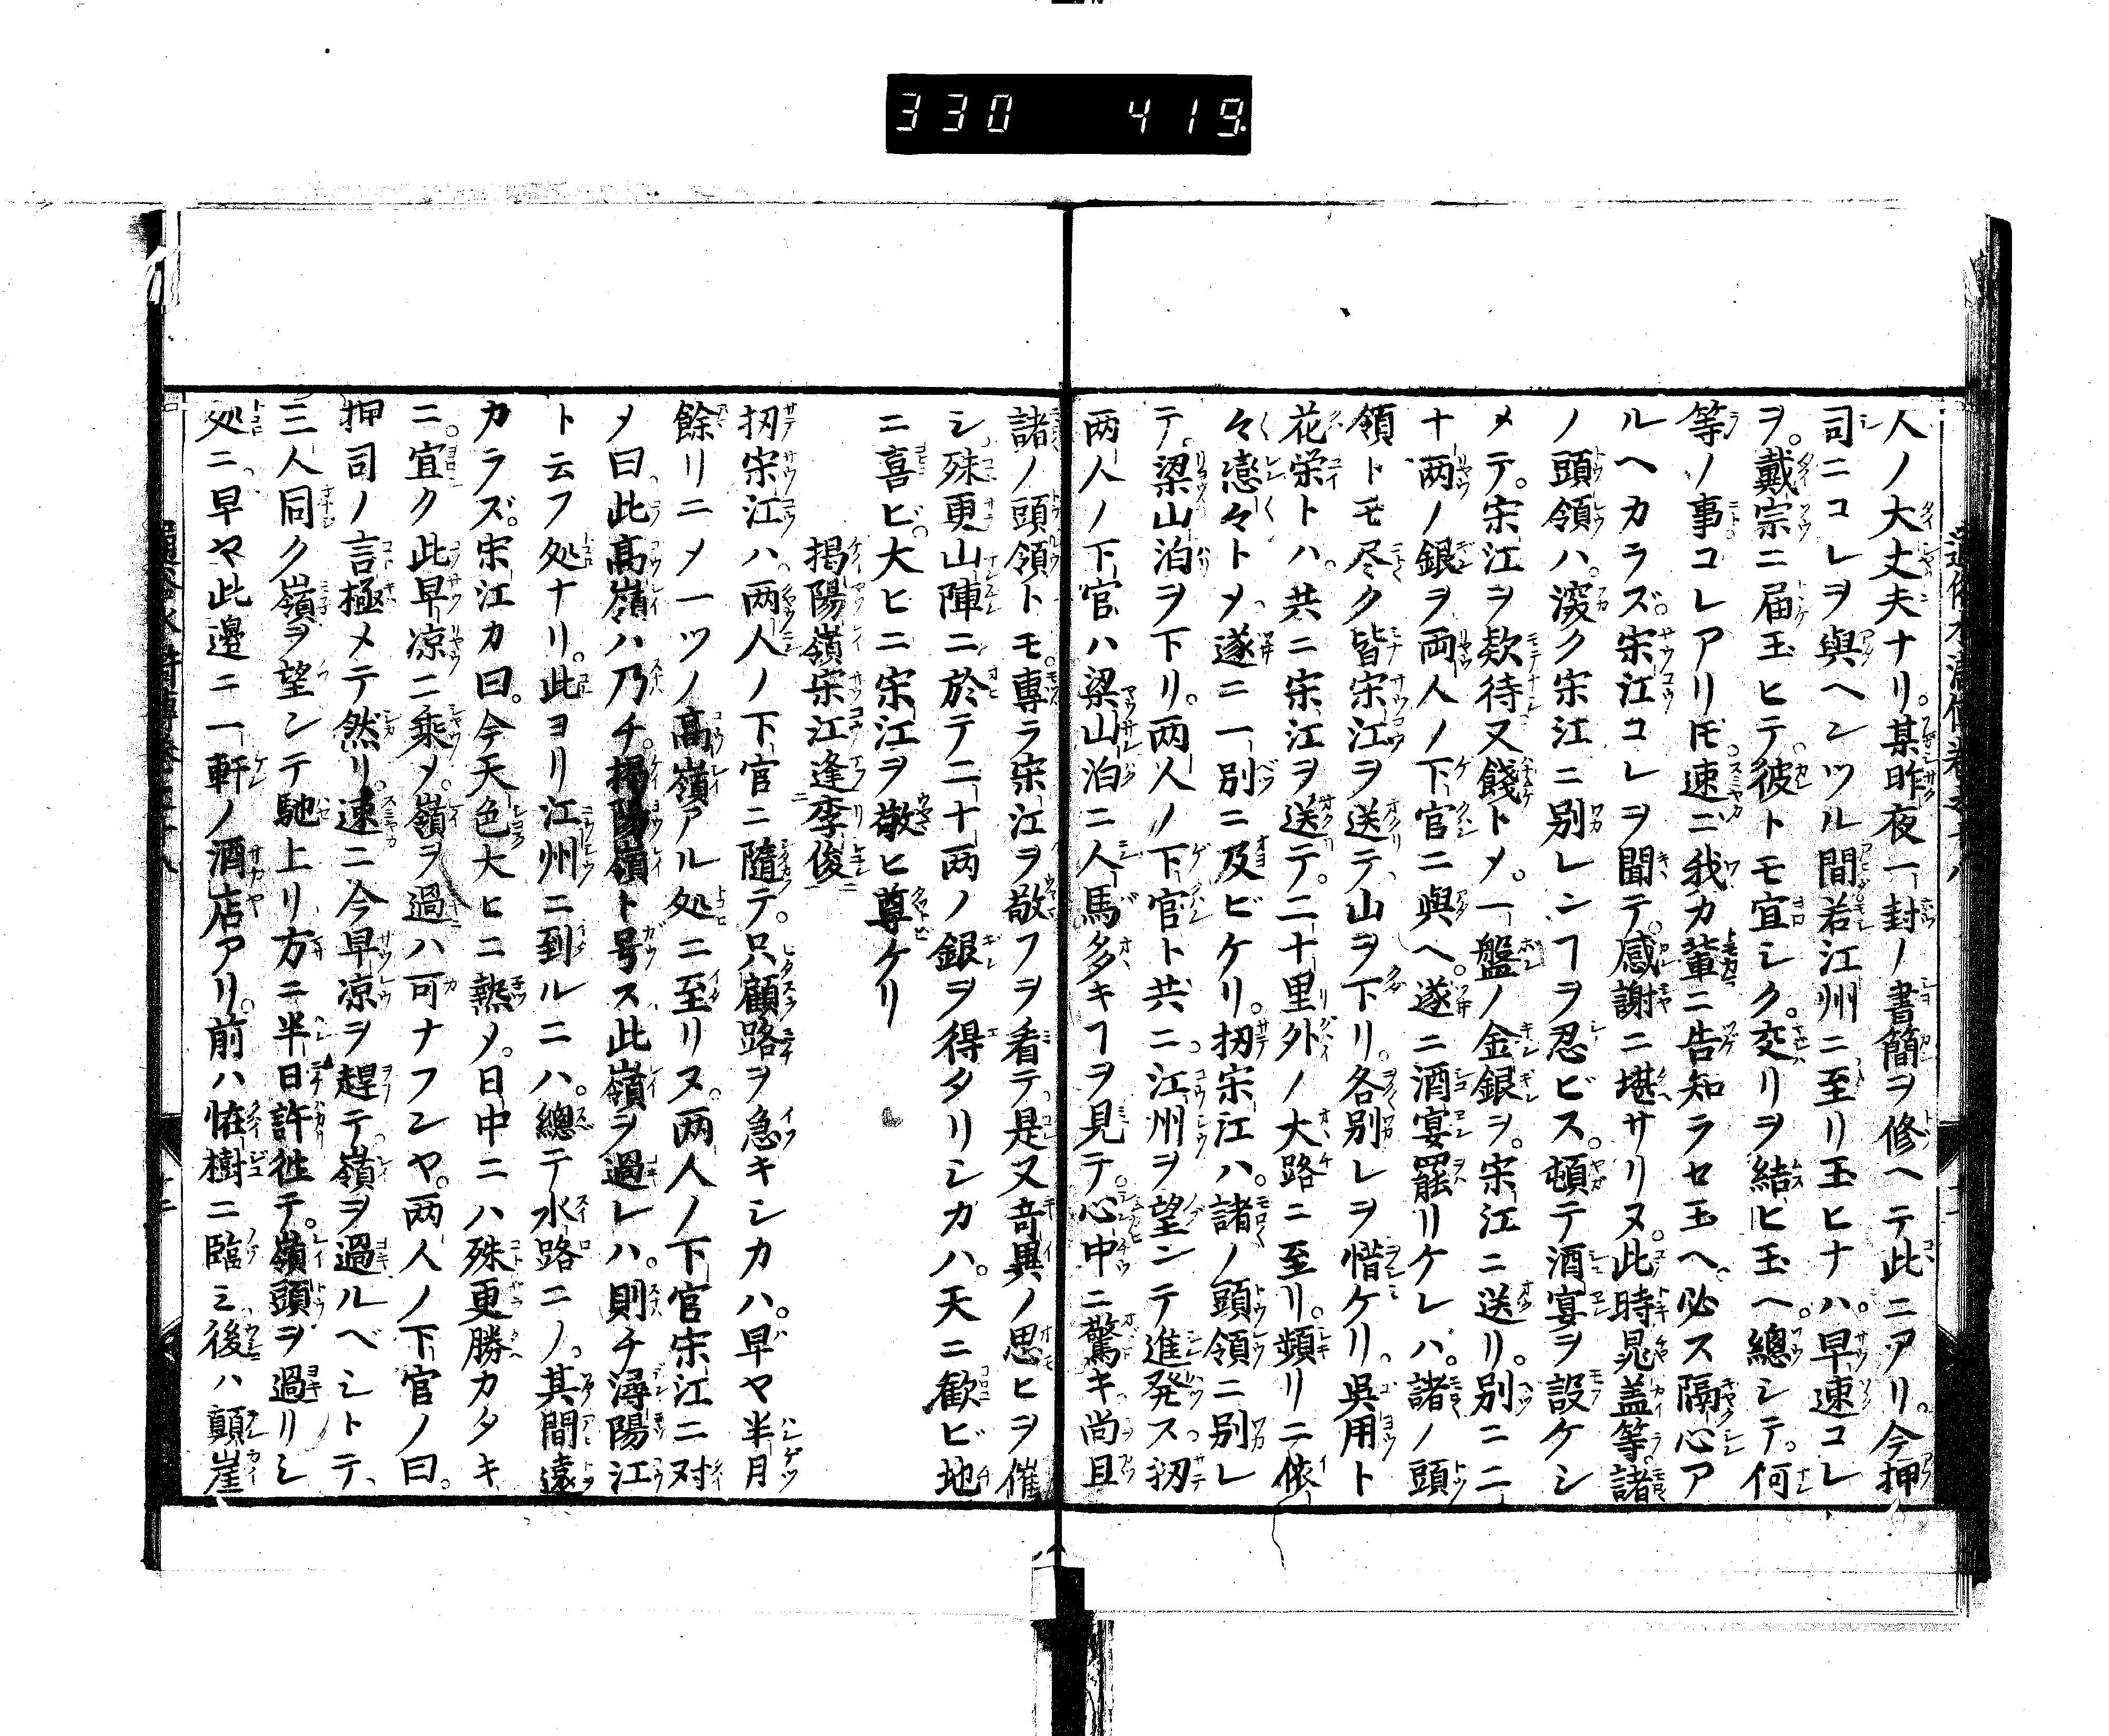 330 419
人ノ大丈夫ナリ。某昨夜一封ノ書簡ヲ修ヘテ此ニアリ。今押
司ニコレヲ與ヘンツル間若江州ニ至リ玉ヒナハ。早速コレ
ヲ。戴宗ニ届玉ヒテ彼トモ宜シク。交リヲ結ヒ玉ヘ。總シテ。何
等ノ事コレアリ𪜈。速ニ我カ輩ニ告知ラセ玉ヘ。必ス隔心ア
ルヘカラズ。宋江コレヲ聞テ。感謝ニ堪サリヌ。此時晁盖等。諸
ノ頭領ハ。深ク宋江ニ別レンヿヲ忍ビス。頓テ酒宴ヲ設ケシ
メテ。宋江ヲ欵待又餞トメ。一盤ノ金銀ヲ。宋江ニ送リ。別ニ二
十両ノ銀ヲ両人ノ下官ニ與ヘ。遂ニ酒宴罷リケレハ。諸ノ頭
領トモ尽ク皆宋江ヲ送テ山ヲ下リ。各別レヲ惜ケリ。呉用ト
花栄トハ。共ニ宋江ヲ送テ。二十里外ノ大路ニ至リ。頻リニ依
々戀々トメ遂ニ一別ニ及ビケリ。扨宋江ハ。諸ノ頭領ニ別レ
テ。梁山泊ヲ下リ。両人ノ下官ト共ニ江州ヲ望ンテ進発ス扨
両人ノ下官ハ梁山泊ニ人馬多キヿヲ見テ。心中ニ驚キ尚且
諸ノ頭領トモ。專ラ宋江ヲ敬フヲ看テ是又竒異ノ思ヒヲ催
シ殊更山陣ニ於テ二十両ノ銀ヲ得タリシカハ。天ニ歓ビ地
ニ喜ビ。大ヒニ宋江ヲ敬ヒ尊ケリ
掲陽嶺宋江逢李俊
扨宋江ハ両人ノ下官ニ隨テ。只顧路ヲ急キシカハ。早ヤ半月
餘リニメ一ツノ高嶺アル処ニ至リヌ。両人ノ下官宋江ニ対
メ曰此髙嶺ハ乃チ。掲陽嶺ト号ス此嶺ヲ過レハ。則チ潯陽江
ト云フ処ナリ。此ヨリ江州ニ到ルニハ。總テ水路ニメ。其間遠
カラズ。宋江カ曰。今天色大ヒニ熱メ。日中ニハ殊更勝カタキ
ニ。宜ク此早凉ニ乘メ。嶺ヲ過ハ可ナランヤ。両人ノ下官ノ曰。
押司ノ言極メテ然リ。速ニ今早凉ヲ趕テ嶺ヲ過ルベシトテ、
三人同ク嶺ヲ望ンテ馳上リ方ニ半日許徃テ。嶺頭ヲ過リシ
処ニ早ヤ此邉ニ一軒ノ酒店アリ。前ハ恠樹ニ臨ミ後ハ顛崖